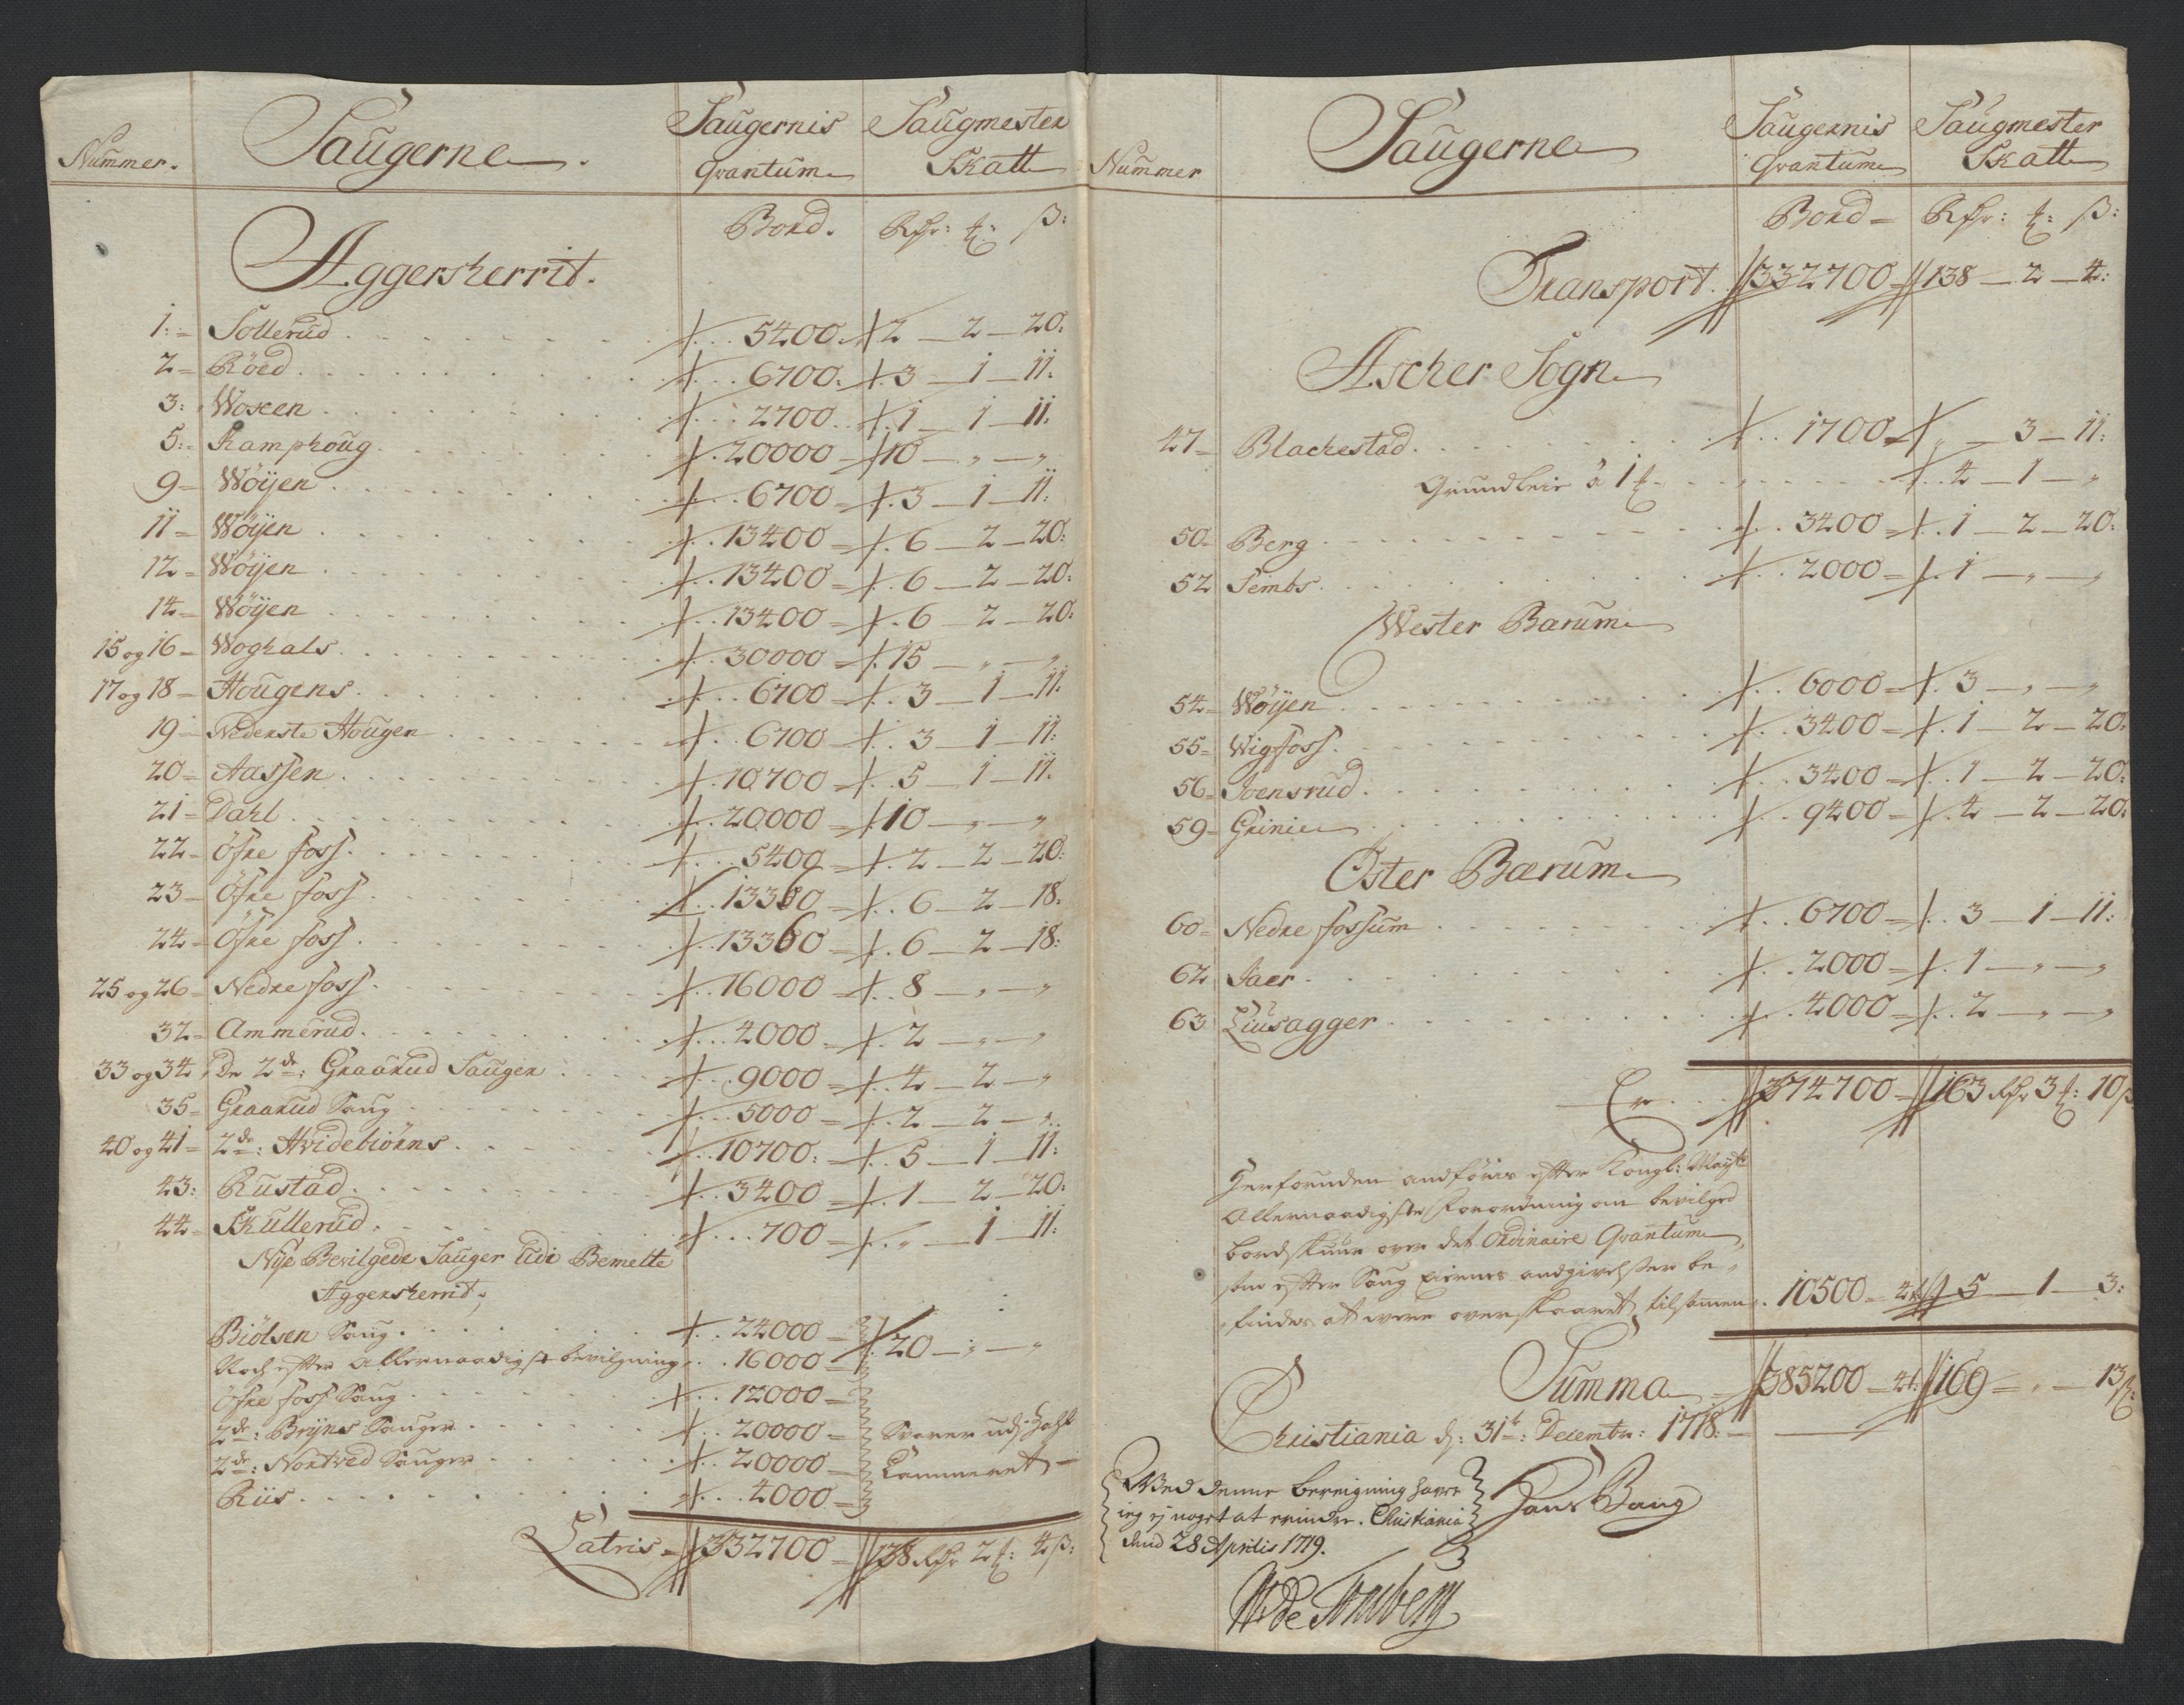 Nummer. Saugerne. Saugernis Qvantum Saugmester Skatt
Bord. Rdr: ƶ: ß:
Aggersherrit.
1:= Sollerud 5400. 2 _ 2 _ 20:
2= Röed 6700. 3 _ 1 _ 11:
3: Woxen 2700. 1 _ 1 _ 11:
5:= Kamphoug 20000 10 _ „ _ „
9= Wöyen 6700 = 3 _ 1 _ 11:
11= Wöyen 13400 = 6 _ 2 _ 20:
12= Wöyen 13400 = 6 _ 2 _ 20:
14= Wöyen 13400 = 6 _ 2 _ 20:
15 og 16= Woghals 30000 = 15 _ „ _ „
17 og 18= Hougens 6700 = 3 _ 1 _ 11:
19= Nederste Hougen 6700 = 3 _ 1 _ 11:
20= Aassen 10700 = 5 _ 1 _ 11.
21= Dahl 20000 = 10 _ „ _ „
22= Öfre foss 5400 = 2 _ 2 _ 20:
23= Öfre foss 13360 = 6 _ 2 _ 18:
24= Öfre foss 13360 = 6 _ 2 _ 18:
25 og 26= Nedre foss 16000 = 8 _ „ _ „
32= Ammerud 4000 = 2 _ „ _ „
33 og 34 De 2de: Graarud Sauger 9000 = 4 _ 2 _ „
35= Graarud Saug 5000 = 2 _ 2 _ „
40 og 41= 2de: Hvidebiörns 10700: = 5 _ 1 _ 11:
43: Rustad 3400 = 1 _ 2 _ 20:
44= Skullerud 700 = „ _ 1 _ 11:
Nye Bevilgede Sauger udi Bemelte
Aggersherrit;
Biölsen Saug 24000 = 20 _ „ _ „
Noch efter Allernaadigst bevilgning 16000 =
Öfre foss Saug 12000 =
2de: Bryns Sauger 20000 = Svarer udj Zahl
2de: Nortved Sauger 20000 = Cammeret =
Riis 4000 =
Latris = 332700 = 138 Rdr 2 ƶ: 4 ß:
Nummer Saugerne Saugernis Qvantum Saugmester Skatt
Bord = Rdr: ƶ: ß:
Transport. 332700 = 138 _ 2 _ 4:
Ascher Sogn
47= Blachestad 1700 = „ _ 3 _ 11:
Grundleie à 1 ƶ „ 4 _ 1 _ „
50= Berg 3400 = 1 _ 2 _ 20:
52 Sembs 2000 = 1 _ „ _ „
Wester Barum
54= Wöyen 6000 = 3 _ „ _ „
55= Wigfoss 3400 = 1 _ 2 _ 20:
56= Joensrud 3400 = 1 _ 2 _ 20:
59= Grinie 9400 = 4 _ 2 _ 20:
Öster Bærum
60= Nedre fossum 6700 = 3 _ 1 _ 11:
62 Jaer 2000 = 1 _ „ _ „
63 Liusagger 4000 = 2 _ „ _ „
Er 374700 = 163 Rdr 3 ƶ: 10 ß
Herforuden andföris efter Kongl: Mayts
Allernaadigste forordning om bevilged
bordskuur over det Ordinaire Qvantum
som efter Saug Eiernes angivelser be„
„findes at were overskaaret, tilsamen 10500 = 5 _ 1 _ 3:
Summa = 385200 = 169 = „ _ 13 ß:
Christiania d: 31te: Decembr: 1718: =
Hans Bang
Wed denne beregning haver
ieg ej noget at erindre. Christiania
dend 28 Aprilis 1719.